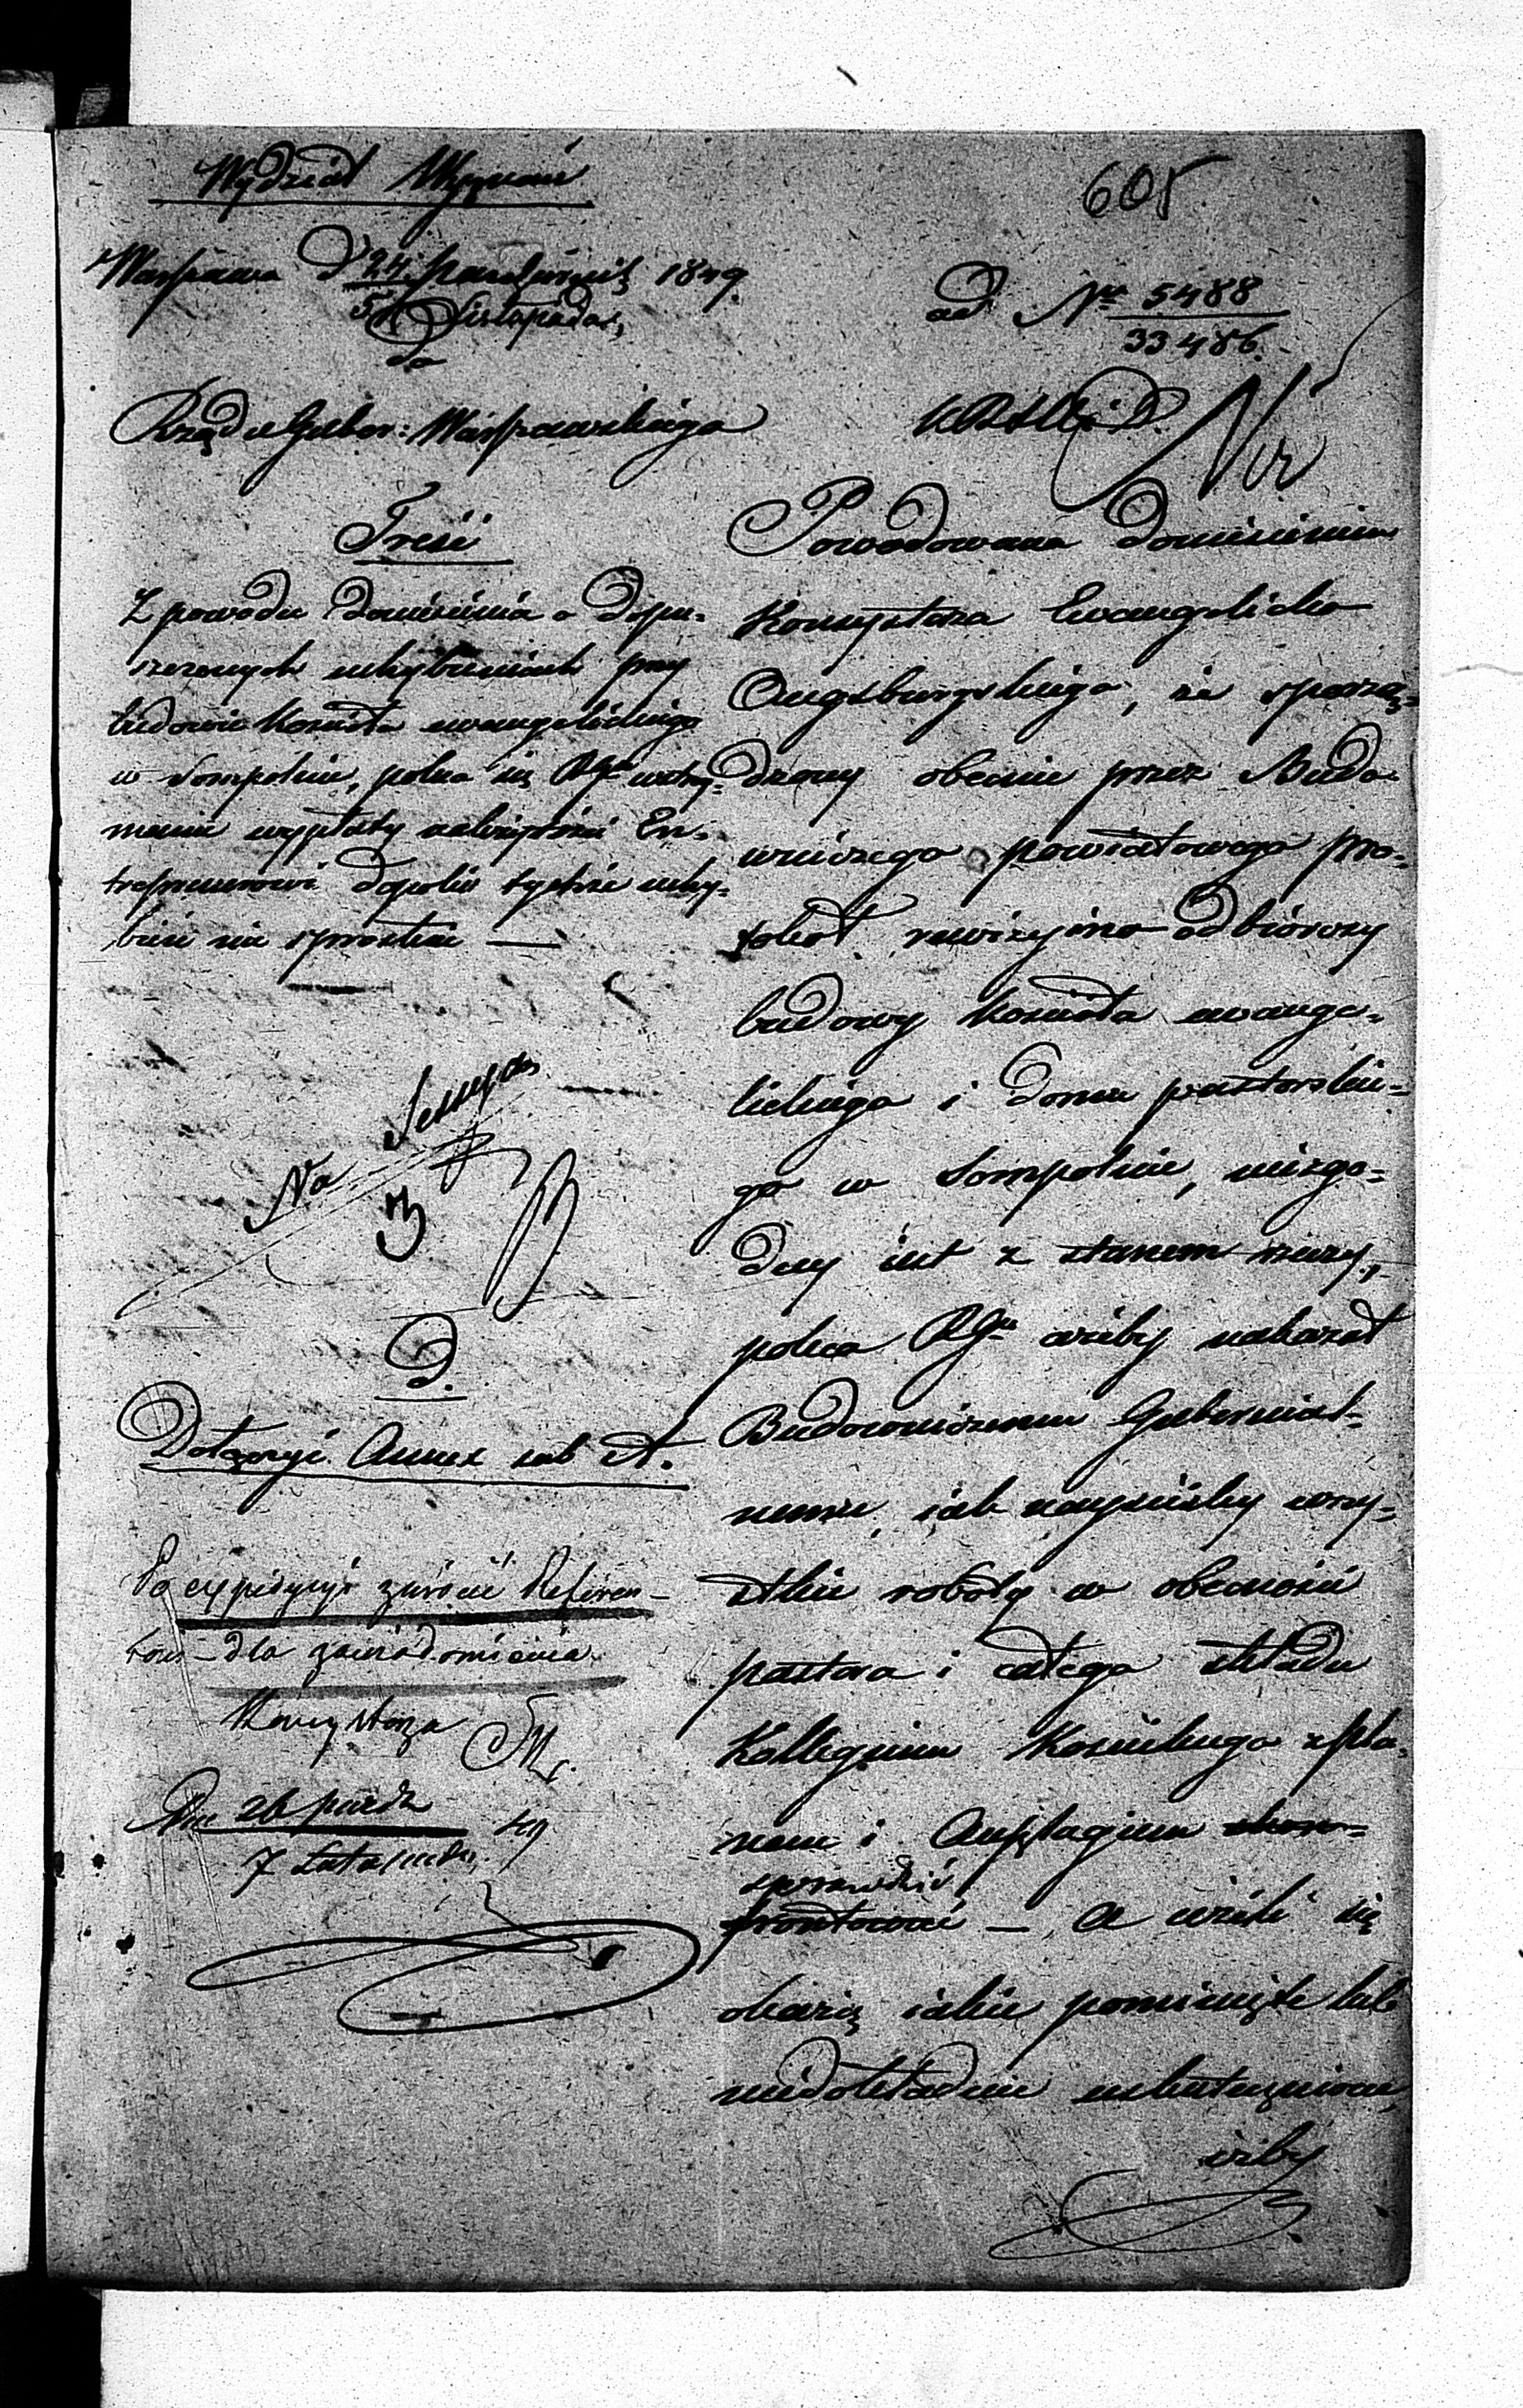 Wydział Wyznań
605
Warszawa d 24 Października 1849.
5 Listopada
do
ad Nr 5488
33486.
Rządu Guber: Warszawskiego
Treść
Z powodu doniesienia o dopu-
szczonych uchybieniach przy
budowie Kościoła ewangelickiego
w Sompolnie, poleca się RGu wstrzy-
manie wypłaty należytości En-
treprenerowi dopokiu tychże uchy-
bień nie sprostuie —
Na Sessyą
D.
Dołączyć Annex sub A.
Po expedycyi zwrócić Referen-
towi dla zawiadomienia
Konsystorza
Dn 26 paźdz
7 Listopada 49
Powodowana doniesieniem
Konsystorza Ewangelicko
Augsburgskiego, że sporzą-
dzony obecnie przez Budo-
wniczego powiatowego pro-
tokół rewizyjno-odbiorczy
budowy Kościoła ewange-
lickiego i domu pastorskie-
go w Sompolnie, niezgo-
dny iest z stanem rzeczy,
poleca RGu ażeby nakazał
Budowniczemu Gubernial-
nemu, iak nayściśley wszy-
stkie roboty w obecności
pastora i całego składu
Kollegium Kościelnego z pla-
nem i Anszlagiem
sprawdzić
— a ieżeli się
okażą iakie pominięte lub
niedokładnie uskutecznione,
iżby